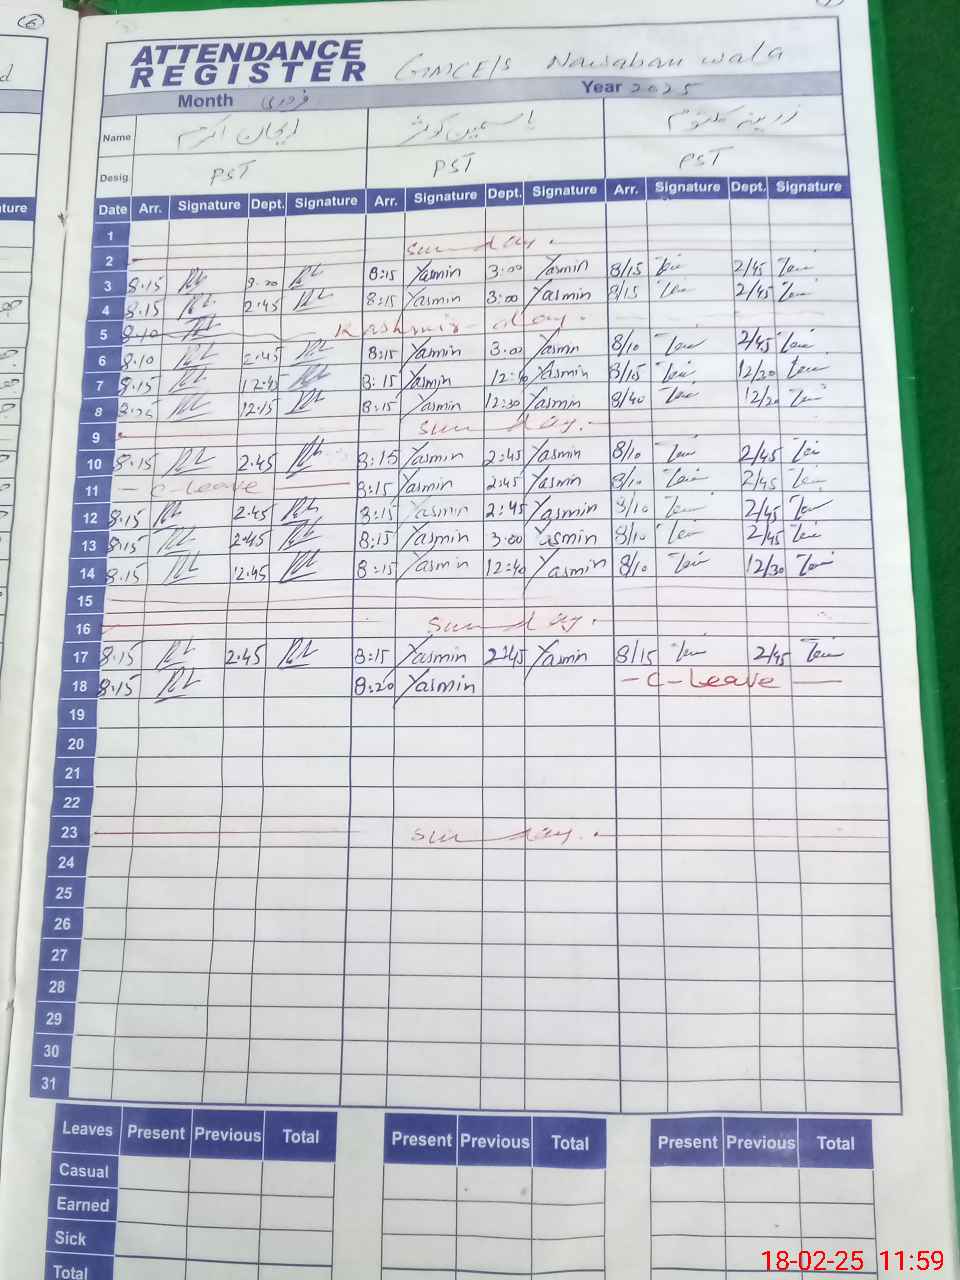 ATTENDANCE
REGISTER
GMCE/S Nawaban wala
Month فروری Year 2025
Name ایمان اکرم یاسمین کوثر زرینہ کلثوم
Desig. PST PST PST
Date Arr. Signature Dept. Signature Arr. Signature Dept. Signature Arr. Signature Dept. Signature
1
2 Sunday.
3 8.15 8:15 Yasmin 3:00 Yasmin 8/15 2/45
4 8.15 2.45 8:15 Yasmin 3:00 Yasmin 8/15 2/45
5 8.10 Kashmir day.
6 8.10 2.45 8:15 Yasmin 3:00 Yasmin 8/10 2/45
7 8.15 12.45 8:15 Yasmin Yasmin 8/15 12/30
8 12.15 8:15 Yasmin 12:30 Yasmin 8/40
9 Sunday.
10 8.15 2.45 8:15 Yasmin 2:45 Yasmin 8/10 2/45
11 - C-Leave 8:15 Yasmin 2:45 Yasmin 8/10 2/45
12 8.15 2.45 8:15 Yasmin 2:45 Yasmin 8/10 2/45
13 8.15 2.45 8:15 Yasmin 3:00 Yasmin 8/10 2/45
14 8.15 12.45 8:15 Yasmin 12:40 Yasmin 8/10 12/30
15
16 Sunday.
17 8.15 2.45 8:15 Yasmin 2:45 Yasmin 8/15 2/45
18 8.15 8:20 Yasmin - C-Leave -
19
20
21
22
23 Sunday.
24
25
26
27
28
29
30
31
Leaves Present Previous Total Present Previous Total Present Previous Total
Casual
Earned
Sick
Total
18-02-25 11:59